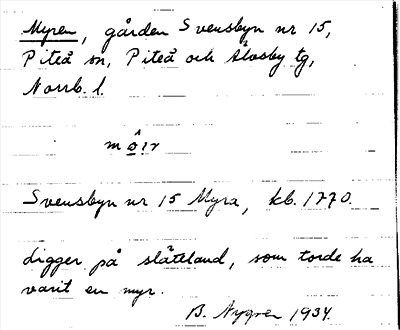 Myren, gården Svensbyn nr 15,
Piteå sn, Piteå och Älvsby tg,
Norrb. l.
Svensbyn nr 15 Myra, kb. 1770.
Ligger på slåtteland, som torde ha
varit en myr.
B. Nygren 1934